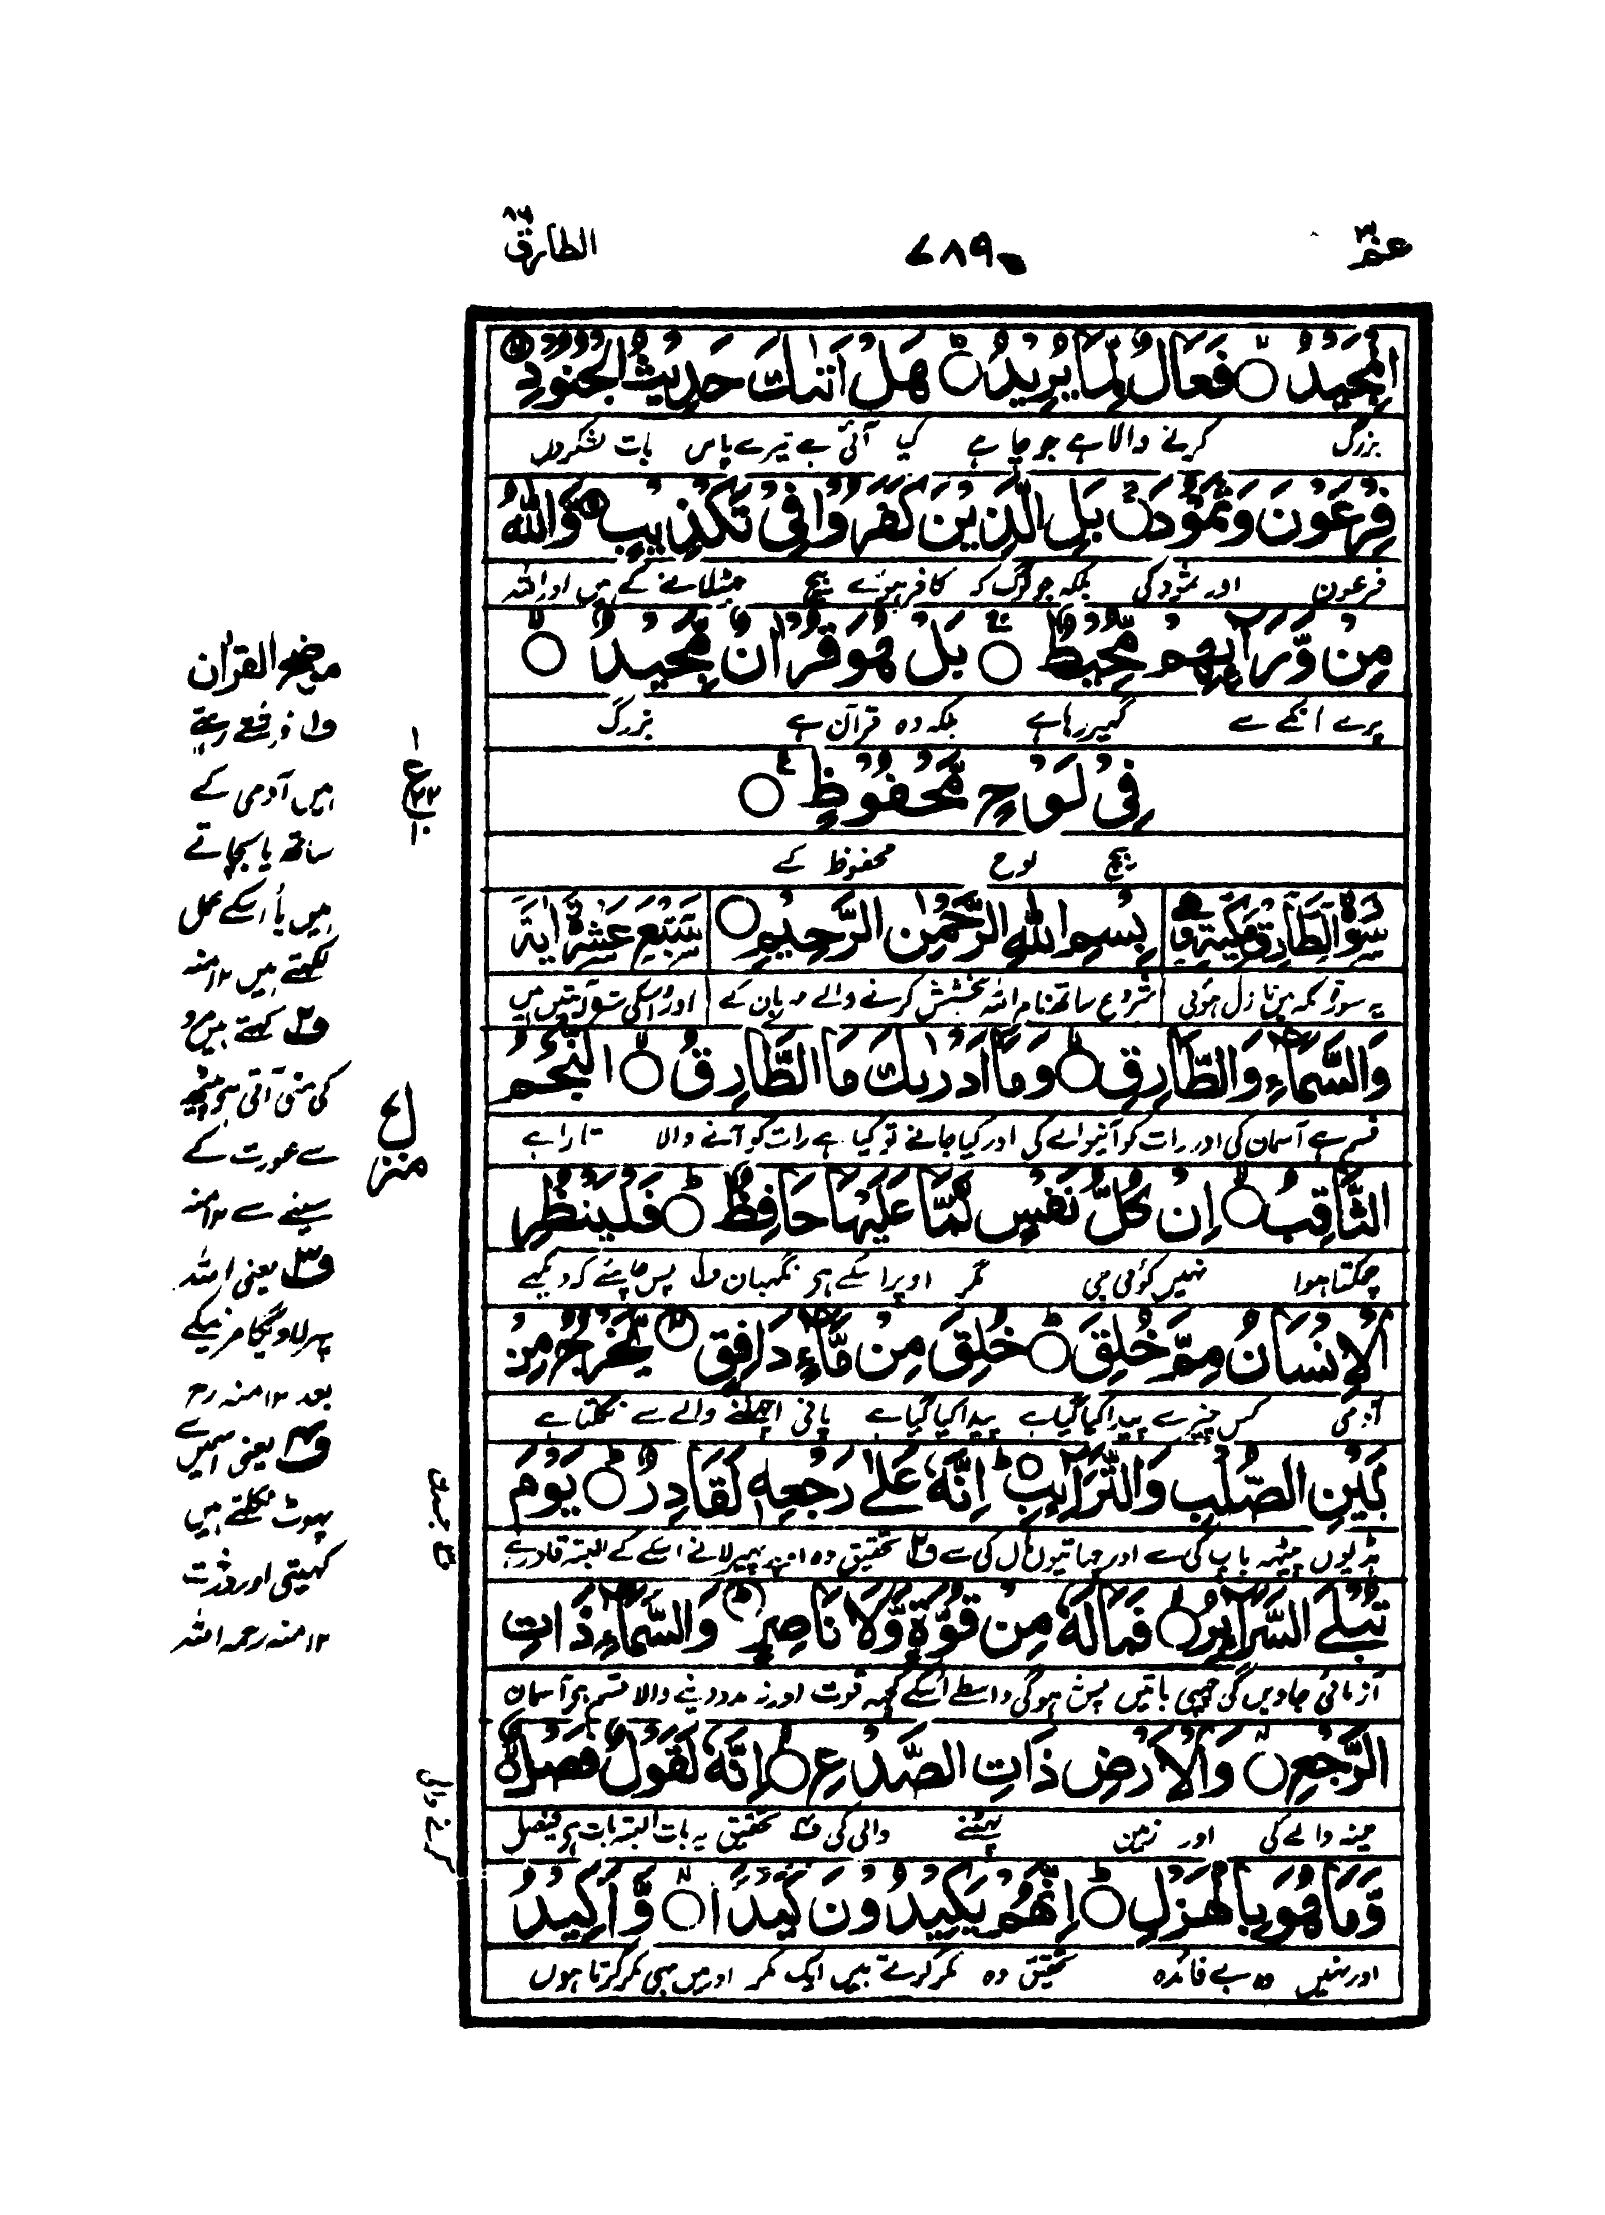 عم ٣٠
٧٨٩
الطارق ٨٦
الْمَجِيدُ ۝ فَعَّالٌ لِّمَا يُرِيدُ ۝ هَلْ أَتٰىكَ حَدِيثُ الْجُنُودِ ۝
بزرگ کرنے والا ہے جو چاہے کیا آئی ہے تیرے پاس بات لشکروں
فِرْعَوْنَ وَثَمُودَ ۝ بَلِ الَّذِينَ كَفَرُوا فِي تَكْذِيبٍ ۝ وَّاللّٰهُ
فرعون اور ثمود کی بلکہ جو لوگ کہ کافر ہوئے بیچ جھٹلانے کے ہیں اور اللہ
مِن وَّرَآئِهِم مُّحِيطٌ ۝ بَلْ هُوَ قُرْاٰنٌ مَّجِيدٌ ۝
پرے انکے سے گھیر رہا ہے بلکہ وہ قرآن ہے بزرگ
فِي لَوْحٍ مَّحْفُوظٍ ۝
بیچ لوح محفوظ کے
سورة الطارق مكية وهي
بِسْمِ اللّٰهِ الرَّحْمٰنِ الرَّحِيمِ ۝
سبع عشرة اية
یہ سورۃ مکہ میں نازل ہوئی
شروع ساتھ نام اللہ بخشش کرنے والے مہربان کے
اور اسکی سترہ آیتیں ہیں
وَالسَّمَآءِ وَالطَّارِقِ ۝ وَمَآ أَدْرٰىكَ مَا الطَّارِقُ ۝ النَّجْمُ
قسم ہے آسمان کی اور رات کو آنیوالے کی اور کیا جانے تو کیا ہے رات کو آنے والا تارا ہے
الثَّاقِبُ ۝ إِنْ كُلُّ نَفْسٍ لَّمَّا عَلَيْهَا حَافِظٌ ۝ فَلْيَنظُرِ
چمکتا ہوا نہیں کوئی جی مگر اوپر اسکے ہے نگہبان ف۱ پس چاہئے کہ دیکھے
الْإِنسَانُ مِمَّ خُلِقَ ۝ خُلِقَ مِن مَّآءٍ دَافِقٍ ۝ يَّخْرُجُ مِن
آدمی کس چیز سے پیدا کیا گیا ہے پیدا کیا گیا ہے پانی اچھلنے والے سے نکلتا ہے
بَيْنِ الصُّلْبِ وَالتَّرَآئِبِ ۝ إِنَّهُ عَلٰى رَجْعِهٖ لَقَادِرٌ ۝ يَوْمَ
ہڈیوں پیٹھ باپ کی سے اور چھاتیوں ماں کی سے ف۲ تحقیق وہ اوپر پھیر لانے اسکے کے البتہ قادر ہے
تُبْلَى السَّرَآئِرُ ۝ فَمَا لَهُ مِن قُوَّةٍ وَّلَا نَاصِرٍ ۝ وَالسَّمَآءِ ذَاتِ
آزمائی جاویں گی چھپی باتیں پس نہ ہوگی واسطے اسکے کچھ قوت اور نہ مدد دینے والا قسم ہے آسمان
الرَّجْعِ ۝ وَالْأَرْضِ ذَاتِ الصَّدْعِ ۝ إِنَّهُ لَقَوْلٌ فَصْلٌ ۝
مینہ والے کی اور زمین پھٹنے والی کی ف۴ تحقیق یہ بات البتہ بات ہے فیصل
وَّمَا هُوَ بِالْهَزْلِ ۝ إِنَّهُمْ يَكِيدُونَ كَيْدًا ۝ وَّأَكِيدُ
اور نہیں وہ بے فائدہ تحقیق وہ مکر کرتے ہیں ایک مکر اور میں بھی مکر کرتا ہوں
موضح القرآن
ف۱ فرشتے رہتے
ہیں آدمی کے
ساتھ یا بچاتے
ہیں یا اسکے عمل
لکھتے ہیں ۱۲ منہ
ف۲ کہتے ہیں مرد
کی منی آتی ہے پیٹھ
سے عورت کے
سینے سے ۱۲ منہ
ف۳ یعنی اللہ
پھر لاویگا مر نیکے
بعد ۱۲ منہ رح
ف۴ یعنی اسمیں سے
پھوٹ نکلتے ہیں
کھیتی اور درخت
۱۲ منہ رحمہ اللہ
۱
ع
۲۲
۱۰
منزل
کرنے والی